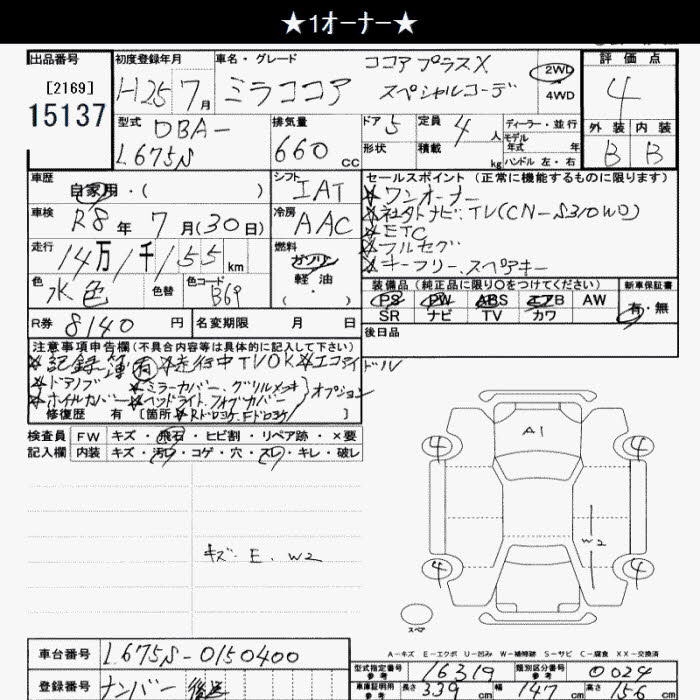 ★1オーナー★
出品番号
[2169]
15137
初度登録年月
H25 7月
車名・グレード
ミラココア
ココア プラスX
スペシャルコーデ
2WD
4WD
評価点
4
外装 内装
B B
型式
DBA-
L675S
排気量
660 cc
ドア 5
形状
定員 4 人
積載 kg
ディーラー・並行
モデル年式 年
ハンドル 左・右
車歴
自家用・( )
シフト
IAT
車検
R8年 7月(30日)
冷房
AAC
走行
14万1千155 km
燃料
ガソリン
軽油
( ・ )
色
水色
色替
色コード
B69
R券 8140 円
名変期限 月 日
セールスポイント (正常に機能するものに限ります)
★ワンオーナー
★社外ナビ.TV(CN-S310WD)
★ETC
★フルセグ
★キーフリー、スペアキー
装備品(純正品に限り○をつけてください)
新車保証書
PS PW ABS エアB AW
SR ナビ TV カワ
有・無
後日品
注意事項申告欄(不具合内容等は具体的に記入して下さい)
★記録簿有 ★走行中TVOK ★エコアイドル
★ドアノブ ★ミラーカバー、グリルメッキ
★ホイルカバー ★ヘッドライト、フォグカバー オプション
修復歴 有 [箇所 ★Rドロヨケ.Fドロヨケ ]
検査員記入欄
FW キズ・飛石・ヒビ割・リペア跡・×要
内装 キズ・汚レ・コゲ・穴・スレ・キレ・破レ
キズ・E.W2
A1
W2
4
4
4
4
スペア
A-キズ E-エクボ U-凹み W-補修跡 S-サビ C-腐食 XX-交換済
車台番号 L675S-0150400
登録番号 ナンバー 後送
型式指定番号 参考 16319
類別区分番号 参考 0024
車庫証明用 参考 長さ 339 cm 幅 147 cm 高さ 156 cm